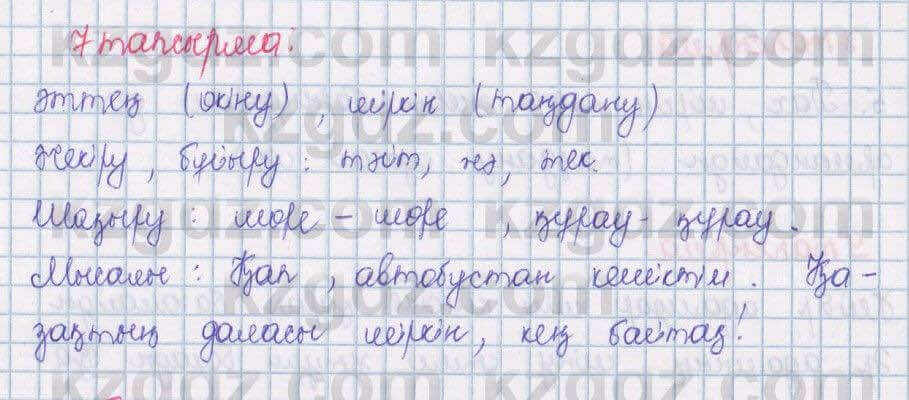 7 тапсырма:
Әттең (өкіну), шіркін (таңдану)
Жекіру, бұйыру: тәйт, жә, тек.
Шақыру: море - море, құрау - құрау.
Мысалы: Қап, автобустан кешіктім. Қа-
зақтың даласы шіркін, кең байтақ!
kzgdz.com